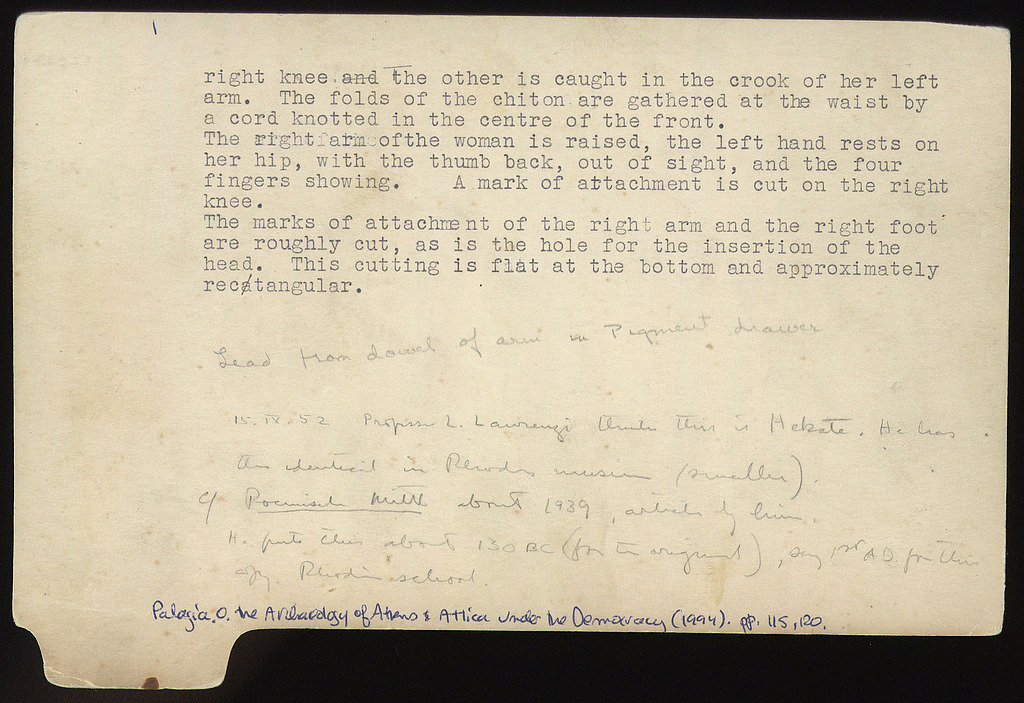 right knee and The other is caught in the crook of her left
arm. The folds of the chiton are gathered at the waist by
a cord knotted in the centre of the front.
The right arm ofthe woman is raised, the left hand rests on
her hip, with the thumb back, out of sight, and the four
fingers showing. A mark of attachment is cut on the right
knee.
The marks of attachment of the right arm and the right foot
are roughly cut, as is the hole for the insertion of the
head. This cutting is flat at the bottom and approximately
rectangular.
Lead from dowel of arm in Pigment drawer
15.IX.52 Professor L. Laurenzi thinks this is Hekate. He has
the identical in Rhodes museum (smaller).
cf Roemische Mitth about 1939, article by him.
H. puts this about 130 BC (for the original), say 1st AD for this
copy. Rhodian school.
Palagia. O. The Archaeology of Athens & Attica under the Democracy (1994). pp. 115, 120.